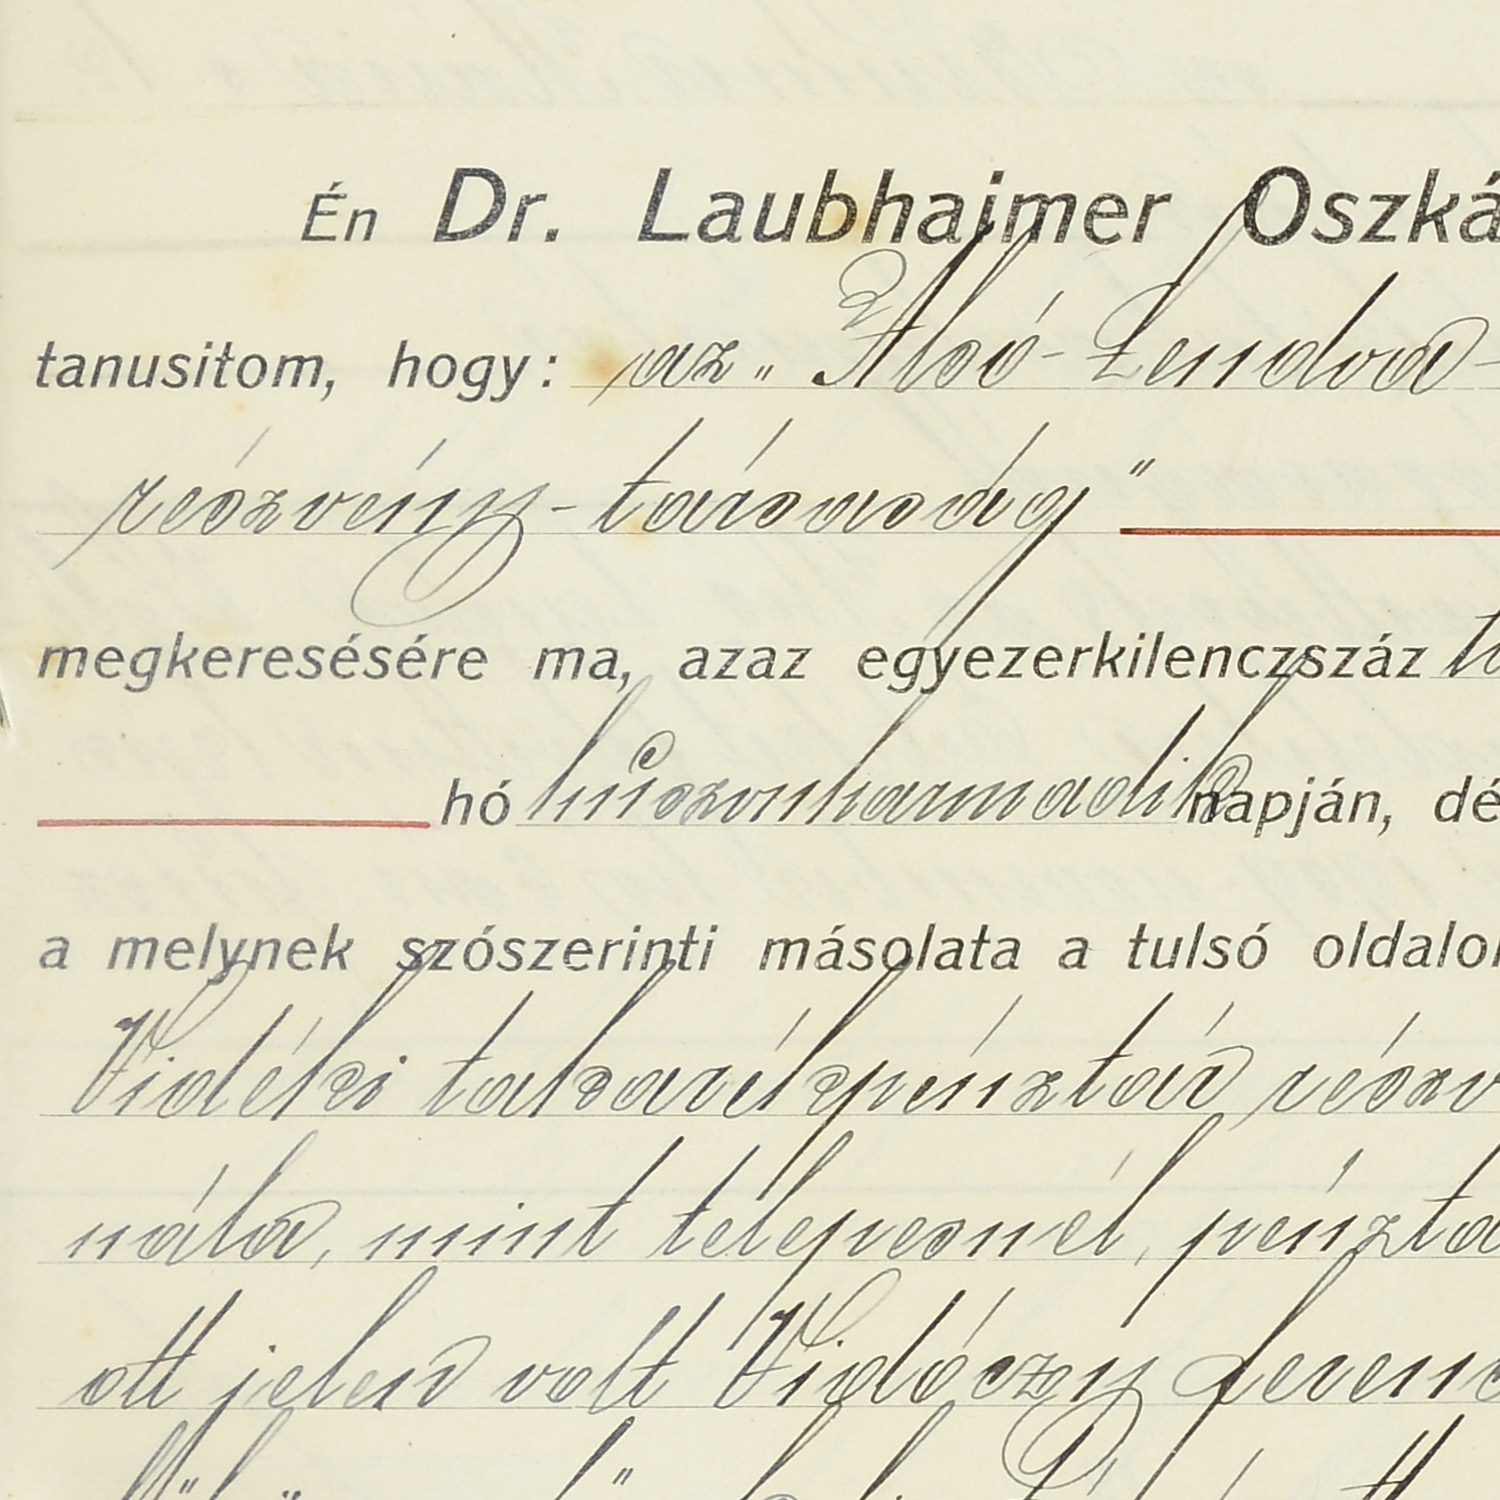 Én Dr. Laubhaimer Oszká
tanusitom, hogy: az „Alsó-Lendva-
részvény-társaság"
megkeresésére ma, azaz egyezerkilenczszáz
hó huszonharmadik napján, dé
a melynek szószerinti másolata a tulsó oldalon
Vidéki takarékpénztár részv
nála, mint telepesnél, pénztá
ott jelen volt Vidóczy Ferenc